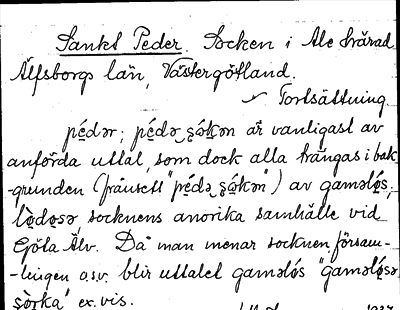 Sankt Peder. Socken i Ale härad
Älfsborgs län, Västergötland.
Fortsättning.
pédər; pédə sókən är vanligast av
anförda uttal, som dock alla trängas i bak-
-grunden (frånsett "pédə sókən") av gaməlós;
lòdosə socknens anorika samhälle vid
Göta Älv. Då man menar socknen, försam-
-lingen o.s.v. blir uttalet gaməlós "gaməlósə
sòrka" ex. vis.